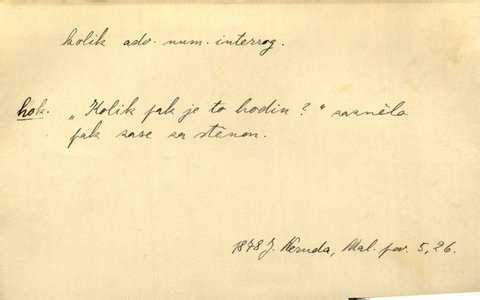 kolik adv. num. interrog.
hok. „Kolik pak je to hodin?“ zazněla
pak zase za stěnou.
1878 J. Neruda, Mal. pov. 5, 26.